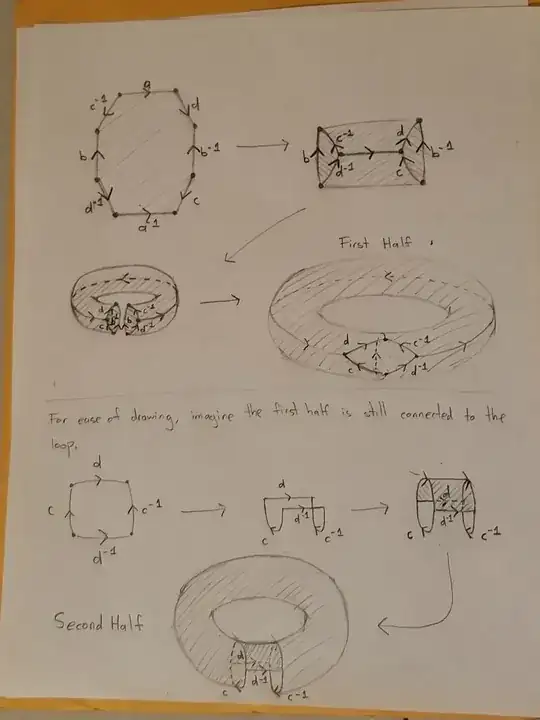 a
c⁻¹ d
b b⁻¹
d⁻¹ c
a⁻¹
c⁻¹ d
b b⁻¹
d⁻¹ c
First Half .
d c⁻¹
c d⁻¹
d c⁻¹
c d⁻¹
For ease of drawing, imagine the first half is still connected to the
loop.
d
c c⁻¹
d⁻¹
d
d⁻¹
c c⁻¹
d
d⁻¹
c c⁻¹
Second Half
d
d⁻¹
c c⁻¹